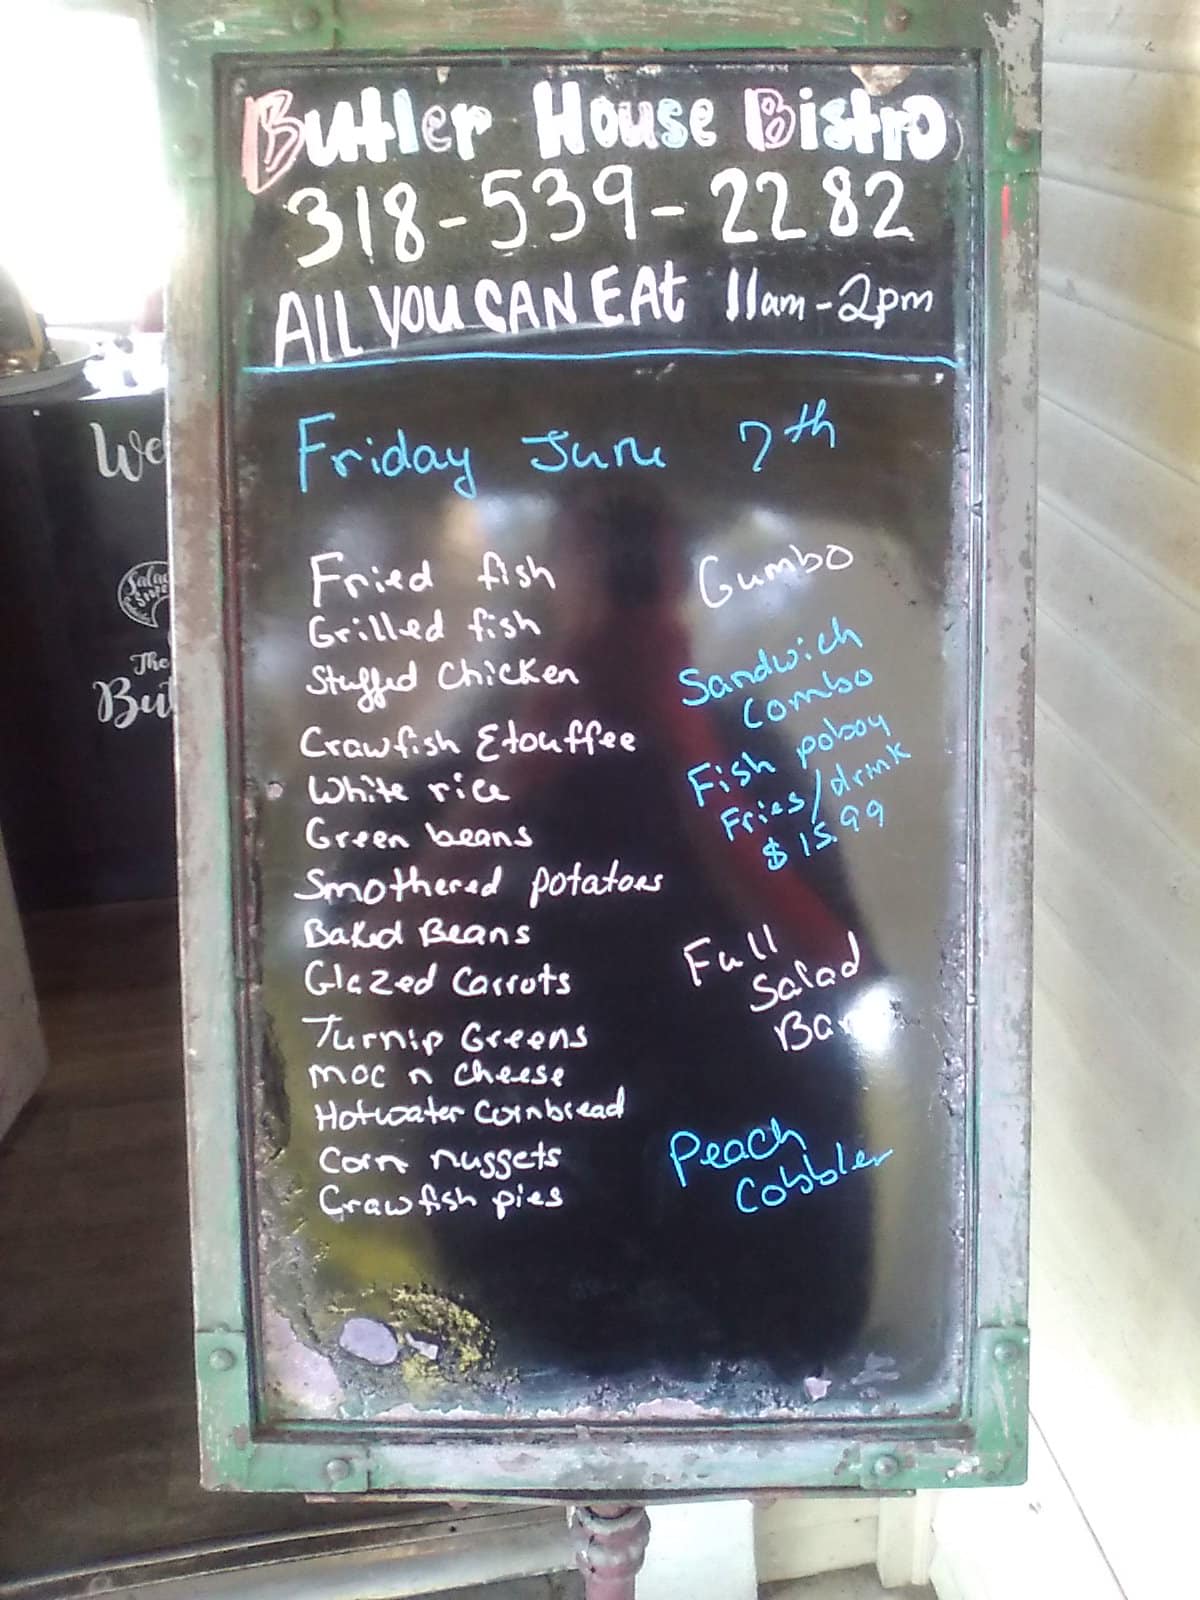 Butler House Bistro
318-539-2282
All YOU CAN EAt 11am-2pm
Friday June 7th
Fried fish
Grilled fish
Stuffed Chicken
Crawfish Etouffee
White rice
Green beans
Smothered potatoes
Baked Beans
Glazed Carrots
Turnip Greens
Mac n cheese
Hotwater Cornbread
Corn nuggets
Crawfish pies
Gumbo
Sandwich
Combo
Fish poboy
Fries/drink
$15.99
Full
Salad
Bar
Peach
Cobbler
The